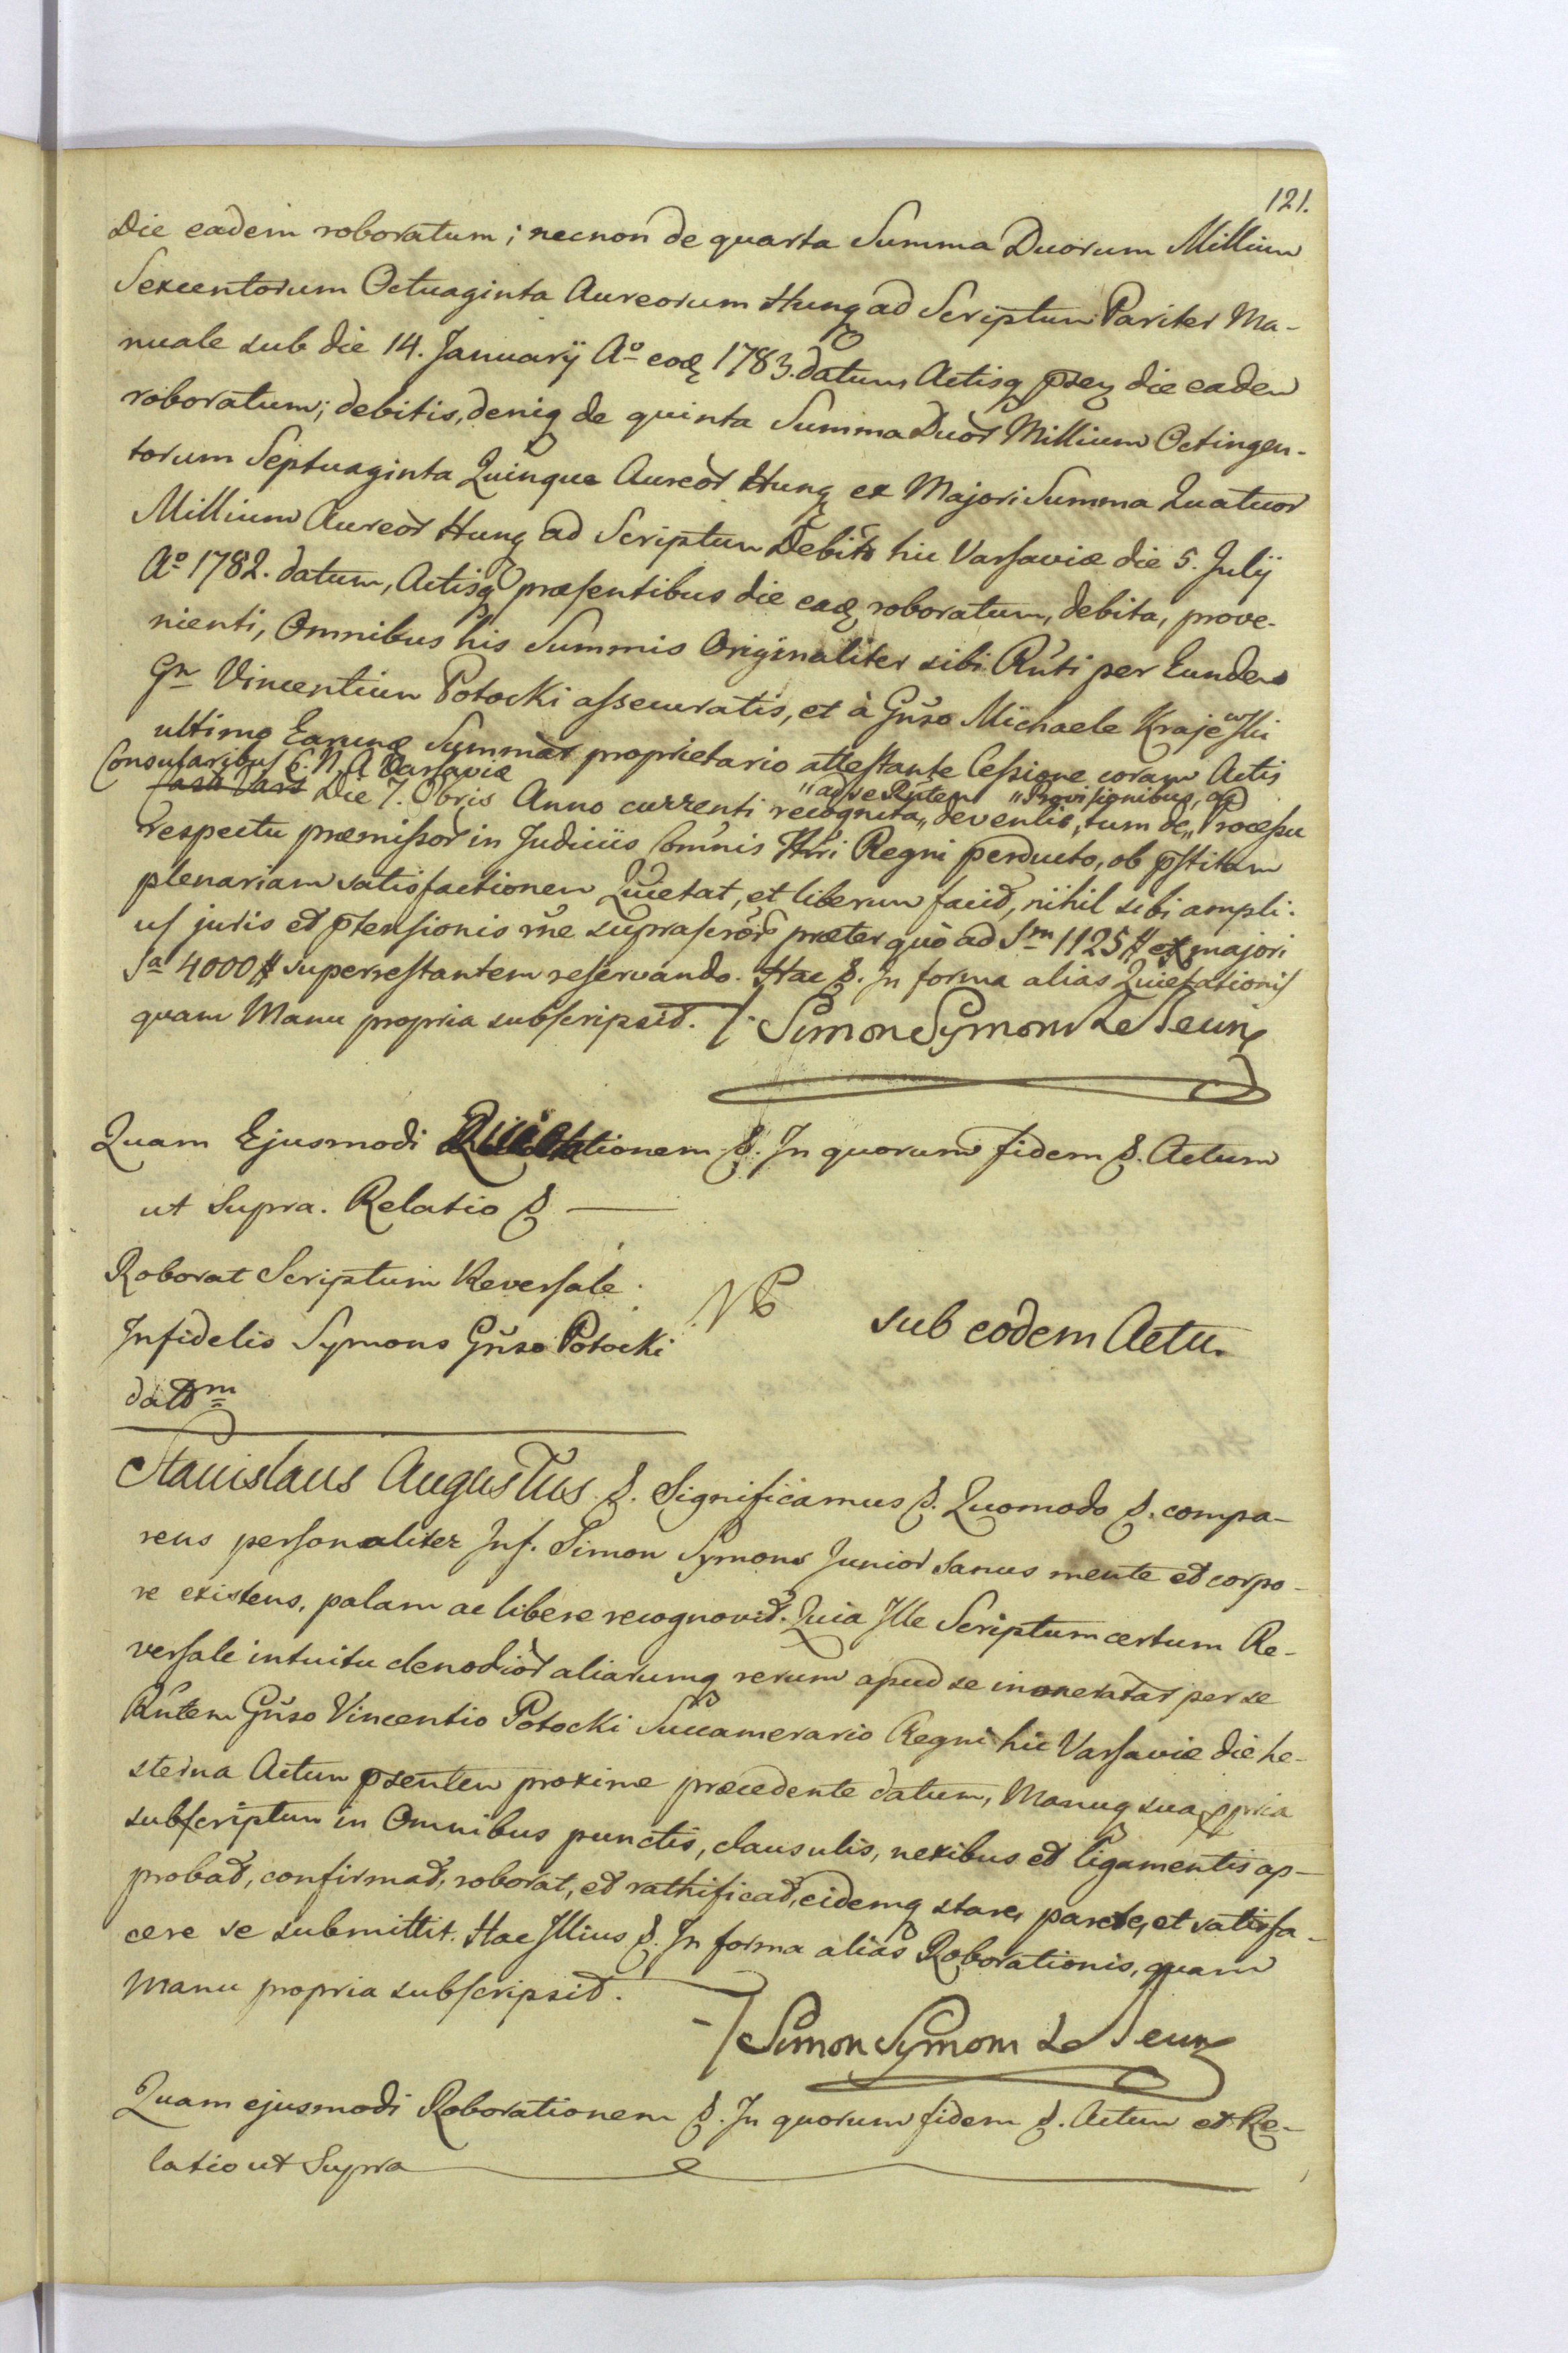 121.
Die eadem roboratum; necnon de quarta Summa Duorum Millium
Sexcentorum Octuaginta Aureorum Hung ad Scriptum Pariter Ma-
nuale sub die 14. Januarÿ Aº eod 1783. datum Actisq pntz die eadem
roboratum; debitis, deniq de quinta Summa Duor Millium Octingen-
torum Septuaginta Quinque Aureor Hung ex Majori Summa Quatuor
Millium Aureor Hung ad Scriptum Debiti hic Varsaviæ die 5. Julÿ
Aº 1782. datum, Actisq præsentibus die ead roboratum, debita, prove-
nienti, Omnibus his Summis Originaliter sibi Rnti per Eundem
Gn Vincentium Potocki assecuratis, et à Gñso Michaele Krajewski
ultimo Earund Summar proprietario attestante Cessione coram Actis
Consularibus C. N. A. Varsaviæ
Die 7. Obris Anno currenti recognita „ devenlis, tum de „ Processu
„ ad se Rntem „ Provisionibus, ac
respectu præmissor in Judiciis Comnis Regni perducto, ob pstitam
plenariam satisfactionem Quietat, et liberum facit, nihil sibi ampli-
us juris et ptensionis rne suprascror præter quò ad Sm 1125 # ex majori
Sa 4000 # superrestantem reservando. Hac &. In forma alias Quietationis
quam Manu propria subscripsit. Simon Symons Le Jeune
Quam Ejusmodi Quietationem &. In quorum fidem &. Actum
ut Supra. Relatio &
Roborat Scriptum Reversale
Infidelis Symons Gñso Potocki
datm
NP
sub eodem Actu.
Stanislaus Augustus &. Significamus &. Quomodo &. compa-
rens personaliter Inf. Simon Symons Junior sanus mente et corpo-
re existens, palam ac libere recognovit. Quia Ille Scriptum certum Re-
versale intuitu clenodior aliarumq rerum apud se inoneratar per se
Rntem Gñso Vincentio Potocki Succamerario Regni hic Varsaviæ die he-
sterna Actum psentem proxime præcedente datum, Manuq sua ppria
subscriptum in Omnibus punctis, clausulis, nexibus et ligamentis ap-
probat, confirmat, roborat, et rathificat, eidemq stare, parere, et satisfa-
cere se submittit. Hac Illius &. In forma alias Roborationis, quam
Manu propria subscripsit.
Simon Symons Le Jeune
Quam ejusmodi Roborationem &. In quorum fidem &. Actum et Re-
latio ut Supra